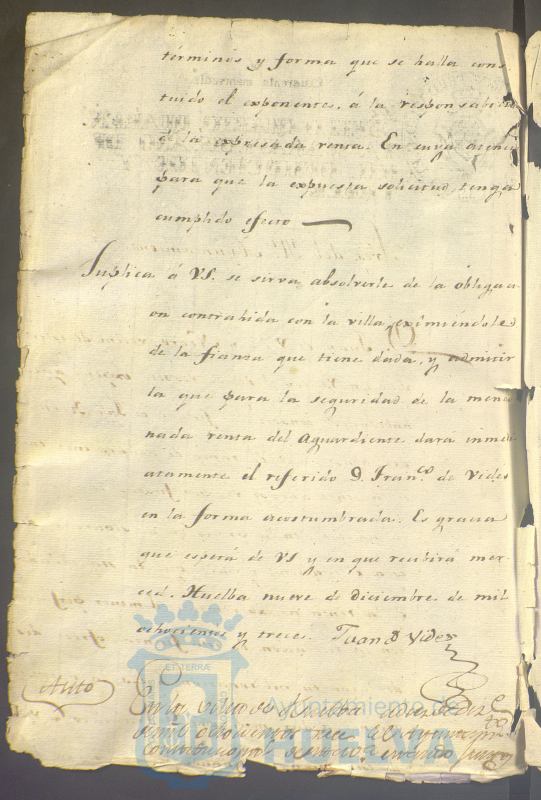 términos y forma que se halla cons
tuido el exponente, á la responsabilid
á la expresada renta. En cuya atenci
para que la expuesta solicitud, tenga
cumplido efecto
Suplica á VS. se sirva absolverle de la obligaci
on contrahida con la villa, eximiéndole
de la fianza que tiene dada, y admitir
la que para la seguridad de la menci
nada renta del Aguardiente dará inmedi
atamente el referido D. Franco. de Vides
en la forma acostumbrada. Es gracia
que espera de VS y en que recibirá mer
ced. Huelba nueve de diciembre de mil
ochocientos y trece. Juan de Vides
Auto
En la villa de Huelba a diez de Diz
de mil ochocientos trece el
Constitucional
ET TERRÆ
Ayuntamiento de
HUELVA